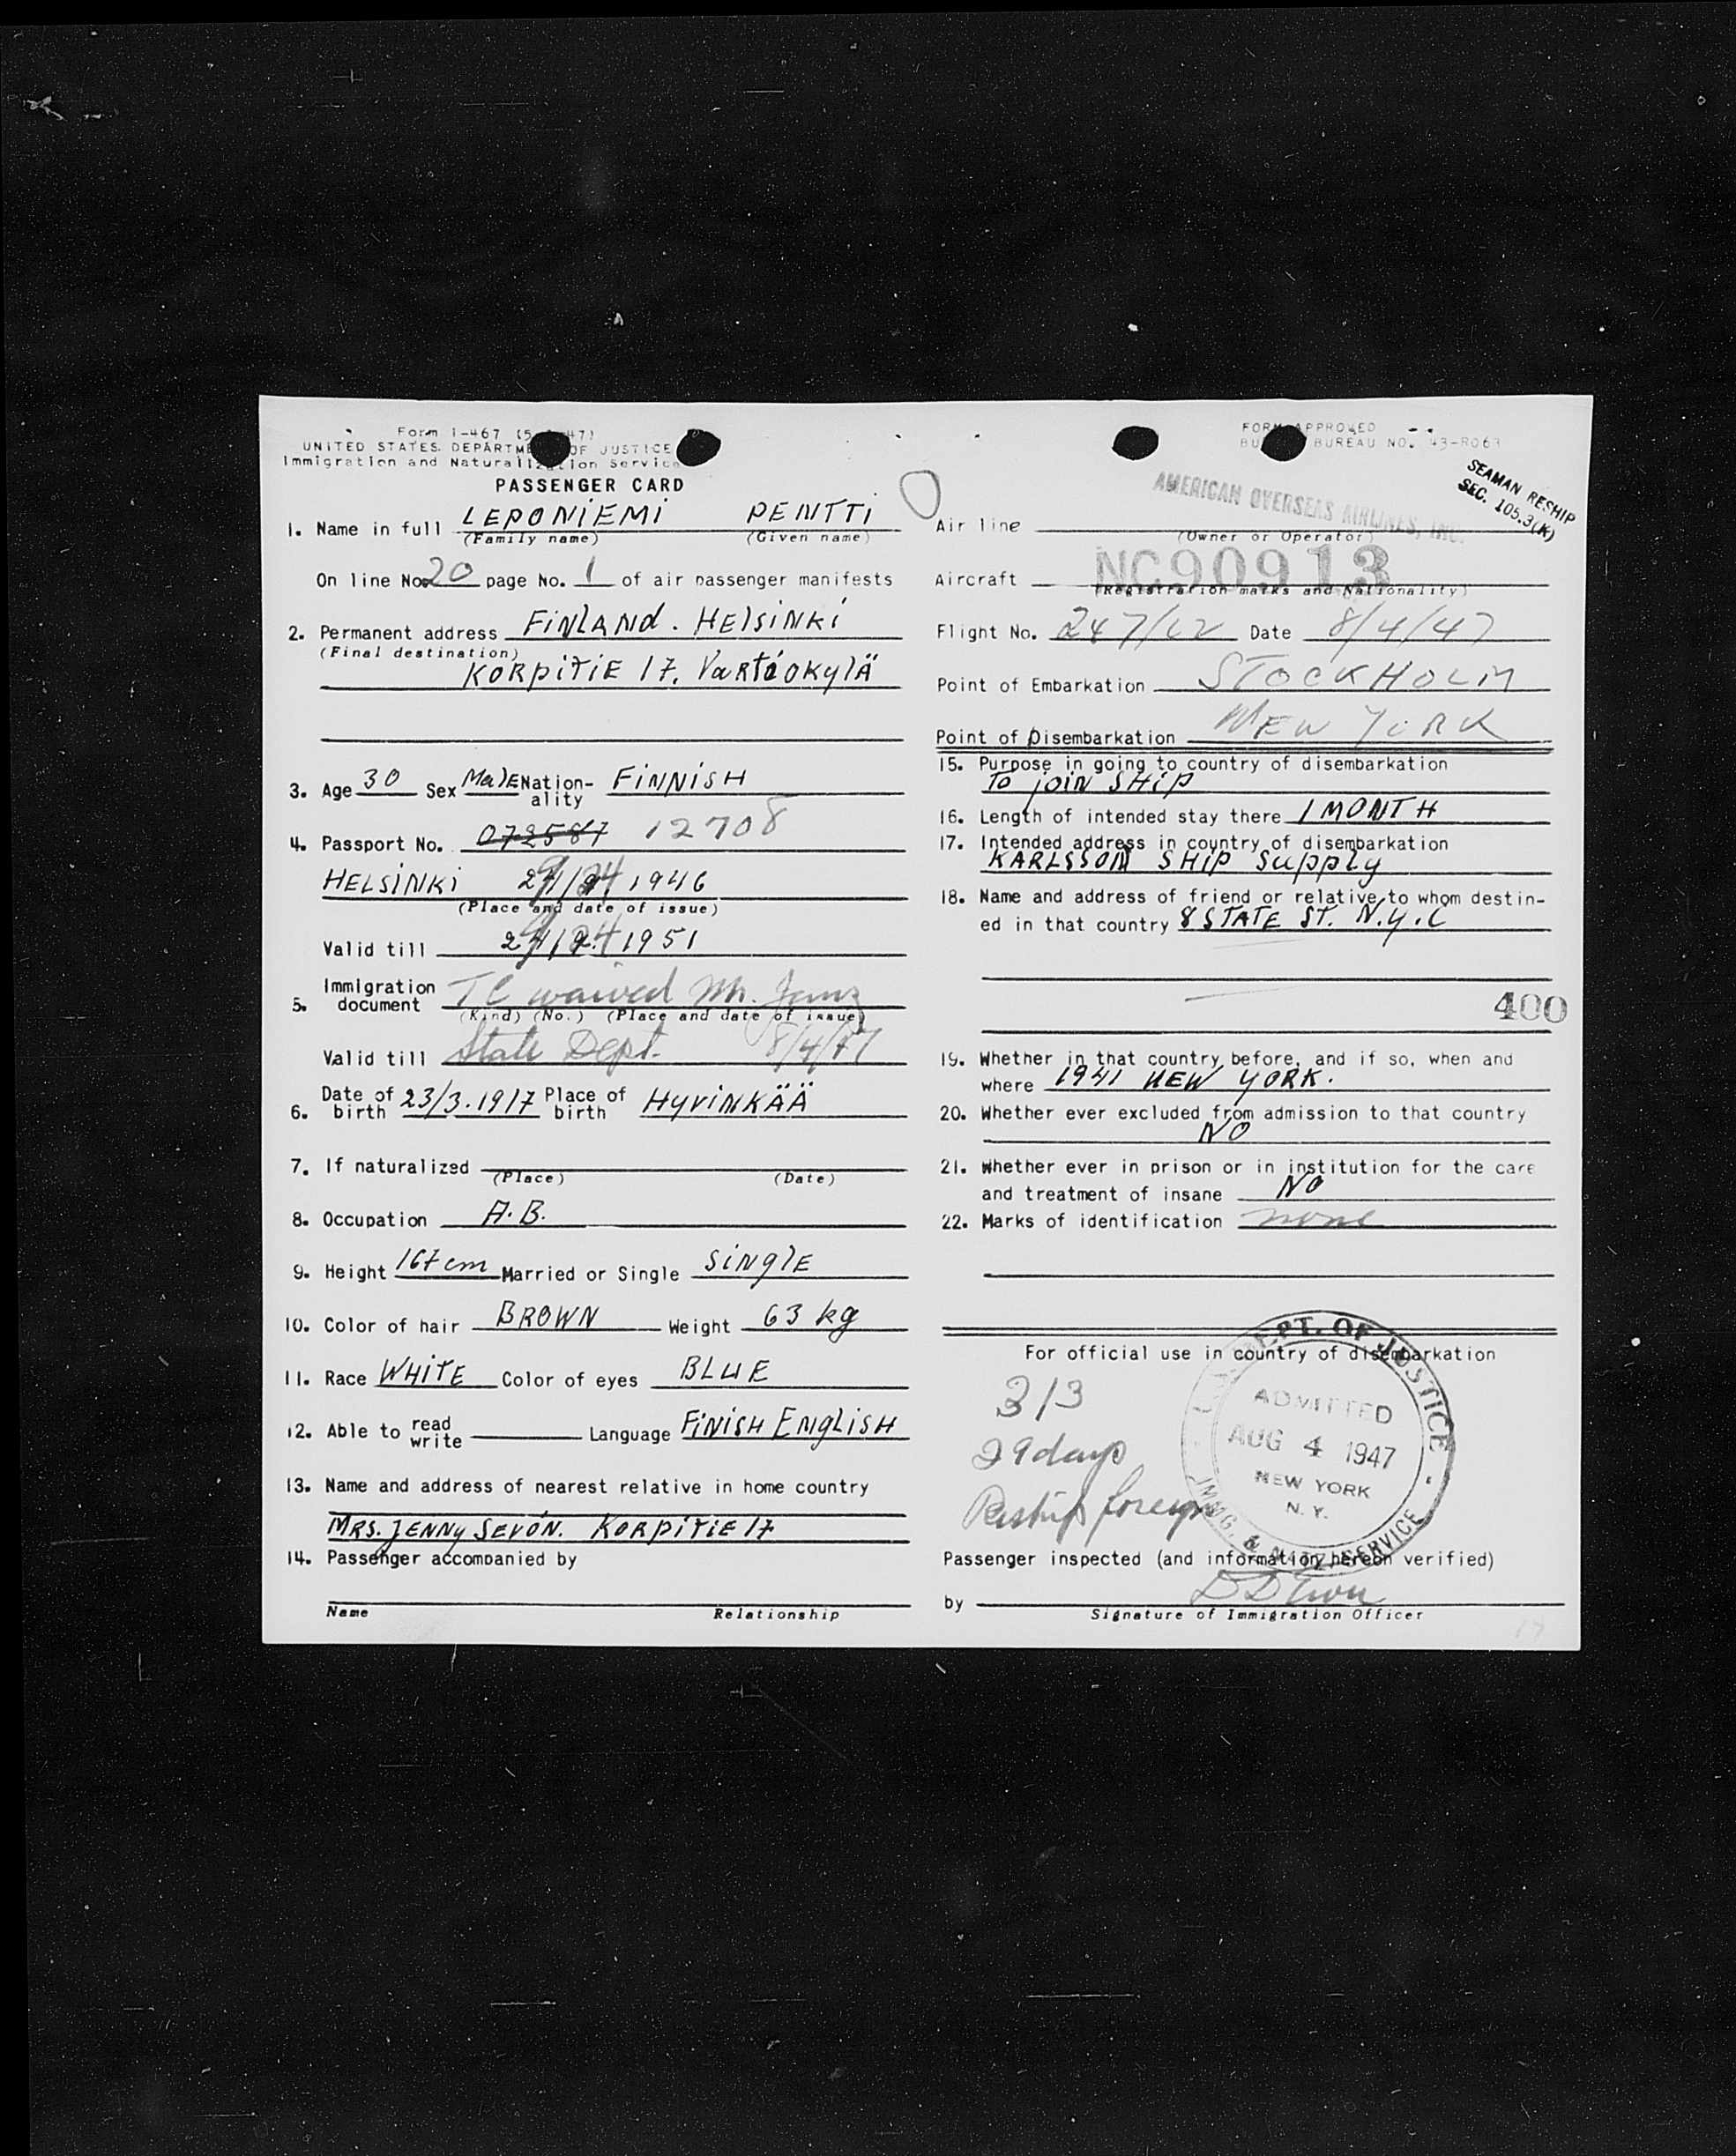 Form I-467
UNITED STATES DEPARTMENT OF JUSTICE
Immigration and Naturalization Service
PASSENGER CARD
1. Name in full LEPONIEMI PENTTI
(Family name) (Given name)
On line No. 20 page No. 1 of air passenger manifests
2. Permanent address FINLAND. HELSINKI
(Final destination)
KORPITIE 17. VaRtiOKylÄ
3. Age 30 Sex MalE Nation-ality FINNISH
4. Passport No. 072587 12708
HELSINKI 1946
(Place and date of issue)
Valid till 1951
5. Immigration document TC waived Mr.
(Kind) (No.) (Place and date of issue)
Valid till State Dept. 8/4/47
6. Date of birth 23/3.1917 Place of birth HyVINKÄÄ
7. If naturalized
(Place) (Date)
8. Occupation A.B.
9. Height 167 cm Married or Single SINglE
10. Color of hair BROWN Weight 63 kg
11. Race WHITE Color of eyes BLUE
12. Able to read write Language FINISH ENglISH
13. Name and address of nearest relative in home country
MRS. JENNy SEVÓN. KORPITIE 17
14. Passenger accompanied by
Name Relationship
FORM APPROVED
BUREAU NO. 43-R063
SEAMAN RESHIP
SEC. 105.3(K)
AMERICAN OVERSEAS AIRLINES, INC.
Air line
(Owner or Operator)
Aircraft NC90913
(Registration marks and Nationality)
Flight No. 247/ Date 8/4/47
Point of Embarkation STOCKHOLM
Point of Disembarkation NEW YORK
15. Purpose in going to country of disembarkation
TO JOIN SHIP
16. Length of intended stay there 1 MONTH
17. Intended address in country of disembarkation
KARLSSON SHIP Supply
18. Name and address of friend or relative to whom destin-
ed in that country 8 STATE ST. N.y.C
400
19. Whether in that country before, and if so, when and
where 1941 NEW YORK.
20. Whether ever excluded from admission to that country
NO
21. Whether ever in prison or in institution for the care
and treatment of insane NO
22. Marks of identification none
For official use in country of disembarkation
3/3
29 days
Reship foreign
DEPT. OF JUSTICE
ADMITTED
AUG 4 1947
NEW YORK
N. Y.
IMMIG. & NATZ. SERVICE
Passenger inspected (and information hereon verified)
by
Signature of Immigration Officer